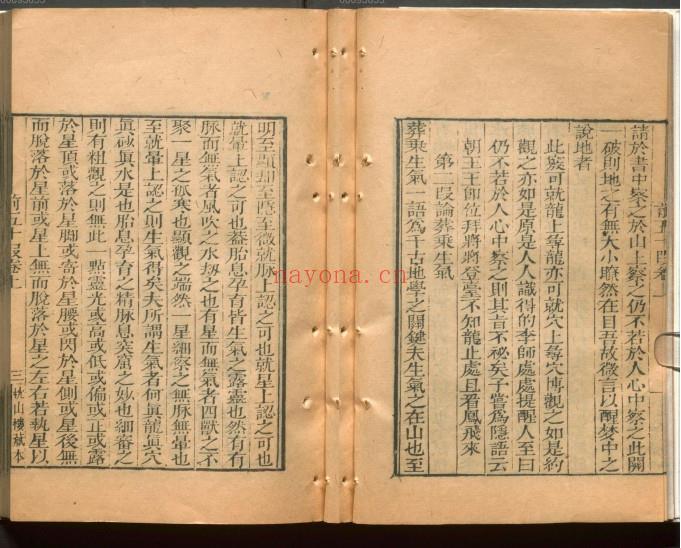 請於書中察之於山上察之仍不若於人心中察之此關
一破則地之有無大小瞭然在目吾故微言以醒夢中之
說地者
此歧可就龍上尋龍亦可就穴上尋穴博觀之如是約
觀之亦如是原是人人識得的李師處處提醒人至曰
仍不若於人心中察之則其旨不祕矣子嘗爲隱語云
朝王王卽位拜將將登臺不知龍止處且看鳳飛來
第二段論葬乘生氣
葬乘生氣一語爲千古地學之關鍵夫生氣之在山也至
明至顯却至隱至微就脈上認之可也就星上認之可也
就暈上認之可也葢胎息孕育皆生氣之露靈也然有有
脈而無氣者風吹之水刼之也有星而無氣者四獸之不
聚一星之孤寒也顯觀之端然一星細察之無脈無暈也
至就暈上認之則生氣得矣夫所謂生氣者何眞龍眞穴
眞砂眞水是也胎息孕育之精脈息突窟之妙也細審之
則有粗觀之則無此一點靈光或高或低或偏或正或露
於星頂或落於星脚或寄於星腰或閃於星側或星後無
而脫落於星前或星上無而脫落於星之左右若執星以
前五十段卷上
三 秋山樓藏本
nayona.cn